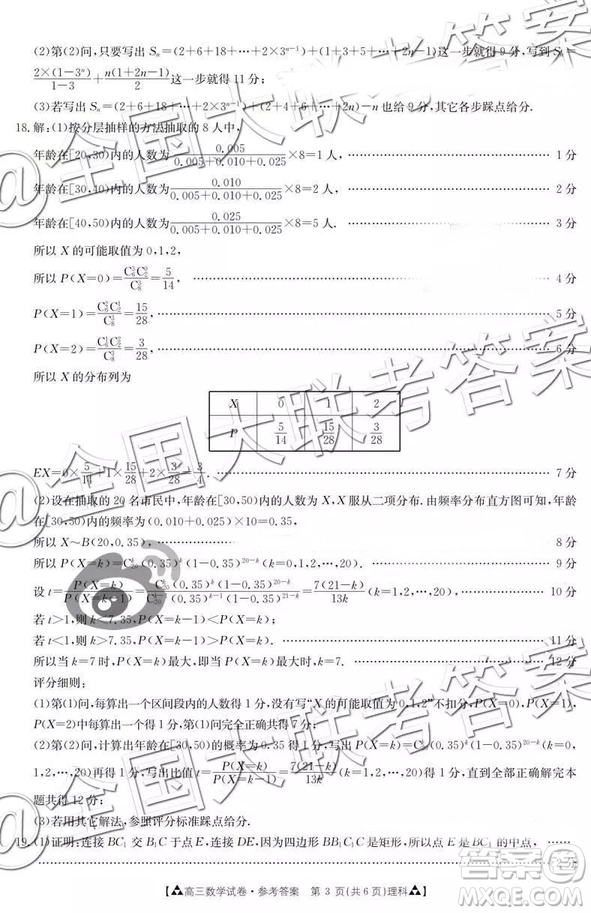 (2)第(2)问,只要写出 Sₙ=(2+6+18+…+2×3ⁿ⁻¹)+(1+3+5+…+2n-1)这一步就得 9 分,写到 Sₙ=
2×(1-3ⁿ)/(1-3)+n(1+2n-1)/2这一步就得 11 分;
(3)若写出 Sₙ=(2+6+18+…+2×3ⁿ⁻¹)+(2+4+6+…+2n)-n 也给 9 分,其它各步踩点给分.
18.解:(1)按分层抽样的方法抽取的 8 人中,
年龄在[20,30)内的人数为0.005/(0.005+0.010+0.025)×8=1 人, 1 分
年龄在[30,40)内的人数为0.010/(0.005+0.010+0.025)×8=2 人, 2 分
年龄在[40,50)内的人数为0.025/(0.005+0.010+0.025)×8=5 人. 3 分
所以 X 的可能取值为 0,1,2,
所以 P(X=0)=C₆³C₂⁰/C₈³=5/14, 4 分
P(X=1)=C₆²C₂¹/C₈³=15/28, 5 分
P(X=2)=C₆¹C₂²/C₈³=3/28, 6 分
所以 X 的分布列为
X 0 1 2
P 5/14 15/28 3/28
EX=0×5/14+1×15/28+2×3/28=3/4. 7 分
(2)设在抽取的 20 名市民中,年龄在[30,50)内的人数为 X,X 服从二项分布.由频率分布直方图可知,年龄
在[30,50)内的频率为(0.010+0.025)×10=0.35,
所以 X~B(20,0.35), 8 分
所以 P(X=k)=C₂₀ᵏ(0.35)ᵏ(1-0.35)²⁰⁻ᵏ(k=0,1,2,…,20). 9 分
设 t=P(X=k)/P(X=k-1)=C₂₀ᵏ(0.35)ᵏ(1-0.35)²⁰⁻ᵏ/C₂₀ᵏ⁻¹(0.35)ᵏ⁻¹(1-0.35)²¹⁻ᵏ=7(21-k)/13k(k=1,2,…,20), 10 分
若 t>1,则 k<7.35,P(X=k-1)<P(X=k);
若 t<1,则 k>7.35,P(X=k-1)>P(X=k). 11 分
所以当 k=7 时,P(X=k)最大,即当 P(X=k)最大时,k=7. 12 分
评分细则:
(1)第(1)问,每算出一个区间段内的人数得 1 分,没有写“X 的可能取值为 0,1,2”不扣分,P(X=0),P(X=1),
P(X=2)中每算出一个得 1 分,第(1)问完全正确共得 7 分;
(2)第(2)问,计算出年龄在[30,50)的概率为 0.35 得 1 分,写出 P(X=k)=C₂₀ᵏ(0.35)ᵏ(1-0.35)²⁰⁻ᵏ(k=0,
1,2,…,20)再得 1 分,写出比值 t=P(X=k)/P(X=k-1)=7(21-k)/13k(k=1,2,…,20)再得 1 分,整个题完全正确本
题共得 12 分;
(3)若用其它解法,参照评分标准踩点给分.
19.(1)证明:连接 BC₁ 交 B₁C 于点 E,连接 DE,因为四边形 BB₁C₁C 是矩形,所以点 E 是 BC₁ 的中点,
2 分
【高三数学试卷·参考答案 第 3 页(共 6 页)理科】
@全国大联考答案
@全国大联考答案
@全国大联考答案
答案圈
MXQE.COM